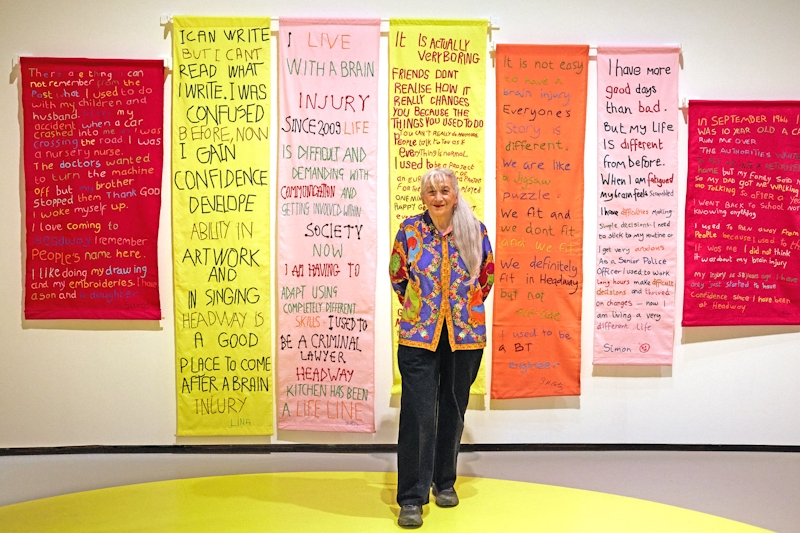 There are things I can
not remember from the
Past what I used to do
with my children and
husband. my
accident when a car
crashed into me I was
crossing the road I was
a nursery nurse.
The doctors wanted
to turn the machine
off but my brother
stopped them Thank GOD
I woke myself up.
I love coming to
Headway I remember
People's name here.
I like doing my drawing
and my embroideries. I have
a son and a daughter
I CAN WRITE
BUT I CANT
READ WHAT
I WRITE. I WAS
CONFUSED
BEFORE, NOW
I GAIN
CONFIDENCE
DEVELOPE
ABILITY IN
ARTWORK
AND
IN SINGING
HEADWAY IS
A GOOD
PLACE TO COME
AFTER A BRAIN
INJURY
LINA
I LIVE
WITH A BRAIN
INJURY
SINCE 2009 LIFE
IS DIFFICULT AND
DEMANDING WITH
COMMUNICATION AND
GETTING INVOLVED WITHIN
SOCIETY
NOW
I AM HAVING TO
ADAPT USING
COMPLETELY DIFFERENT
SKILLS - I USED TO
BE A CRIMINAL
LAWYER
HEADWAY
KITCHEN HAS BEEN
A LIFE LINE
IT IS ACTUALLY
VERY BORING
FRIENDS DONT
REALISE HOW IT
REALLY CHANGES
YOU BECAUSE THE
THINGS YOU USED TO DO
YOU CAN'T REALLY
PEOPLE TALK TO YOU AS IF
EVERYTHING IS NORMAL
I USED TO BE A PROJECT
It is not easy
to have a
brain injury
Everyone's
Story is
different.
We are like
a Jigsaw
puzzle.
We fit and
we dont fit
and we fit
We definitely
fit in Headway
but not
outside
I used to be
a BT
engineer
I have more
good days
than bad.
But my life
is different
from before.
When I am fatigued
my brain feels scrambled
I have difficulties making
simple decisions. I need
to stick to my routine or
I get very anxious
As a Senior Police
Officer I used to work
long hours make difficult
decisions and thrived
on changes - now I
am living a very
different life
Simon
IN SEPTEMBER 1964 I
WAS 10 YEAR OLD A CAR
RUN ME OVER
THE AUTHORITIES WANTED
home but my Family Said NO
SO MY DAD GOT ME WALKING
WENT BACK TO SCHOOL NOT
Knowing anything
I USED TO RUN AWAY FROM
People because I used to think
it was me I did not think
it was about my brain injury
only just started to have
Confidence since I have been
at Headway